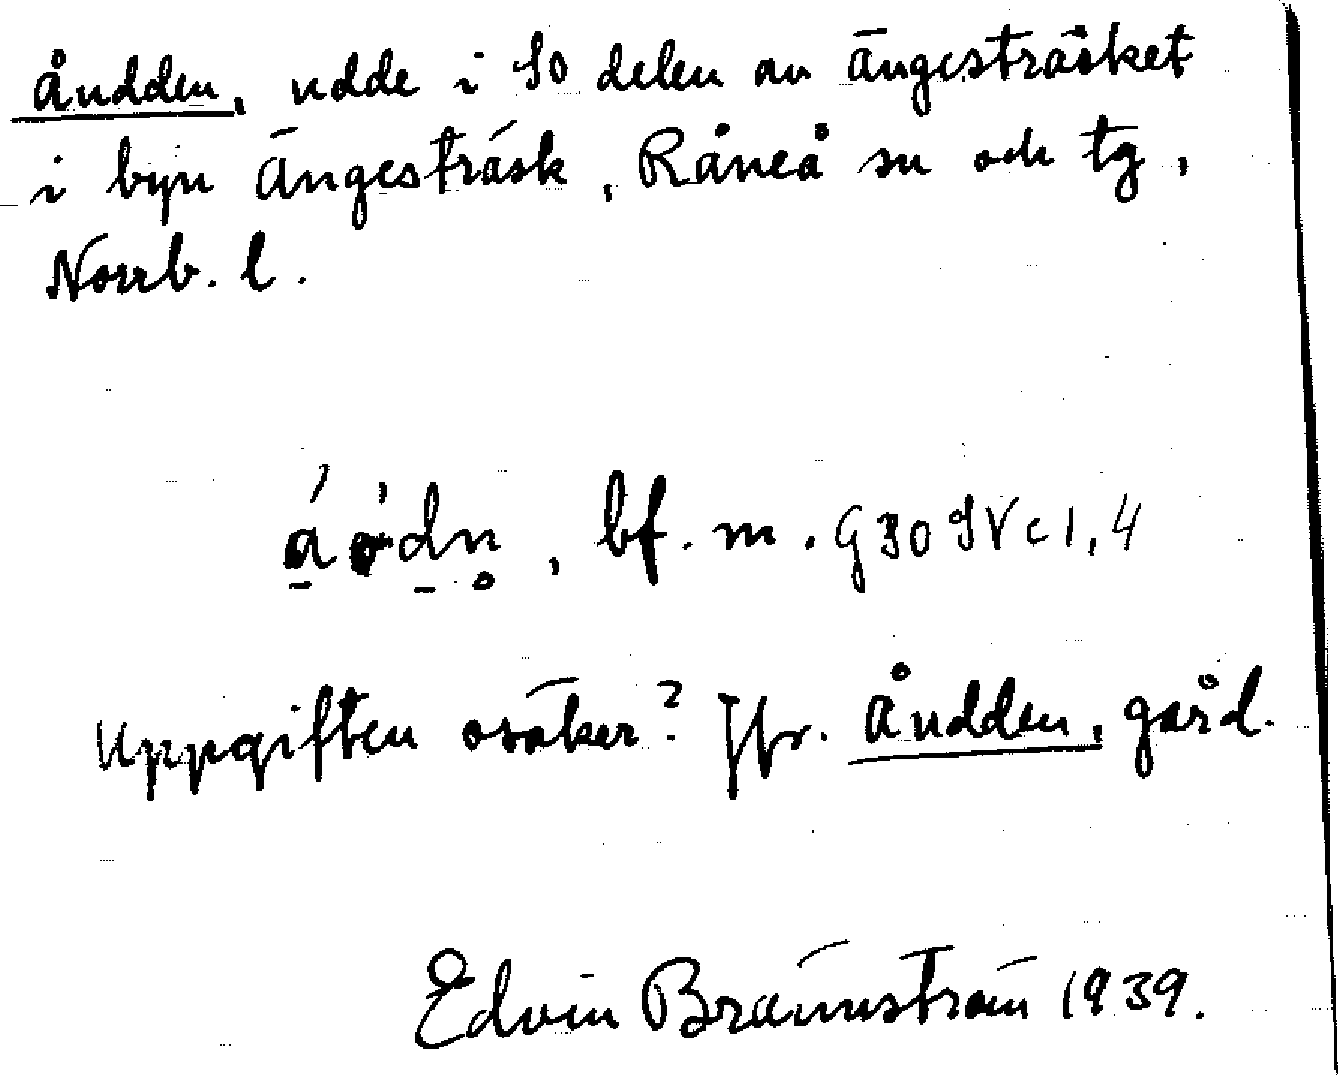 Åudden, udde i SO delen av Ängesträsket
i byn Ängesträsk, Råneå sn och tg,
Norrb. l.
bf. m. G30 IV c 1, 4
Uppgiften osäker? Jfr. Åudden, gård.
Edvin Brännström 1939.